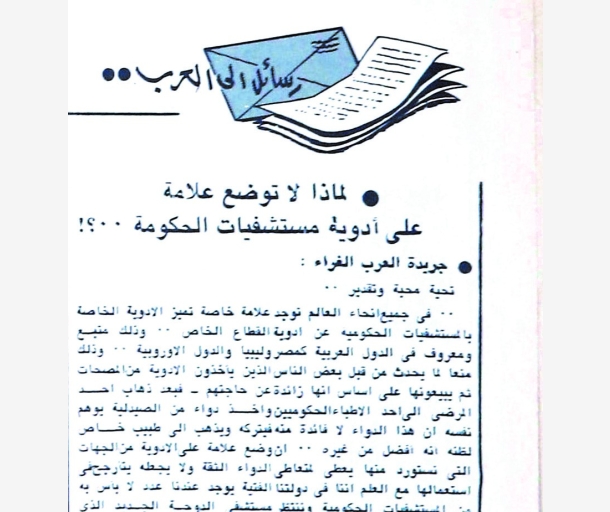 رسائل الى العرب ••
● لماذا لا توضع علامة
على أدوية مستشفيات الحكومة ٠٠؟!
● جريدة العرب الغراء :
تحية محبة وتقدير ٠٠
٠٠ فى جميع انحاء العالم توجد علامة خاصة تميز الادوية الخاصة
بالمستشفيات الحكوميه عن ادوية القطاع الخاص ٠٠ وذلك متبع
ومعروف فى الدول العربية كمصر وليبيا والدول الاوروبية ٠٠ وذلك
منعا لما يحدث من قبل بعض الناس الذين ياخذون الادوية من المصحات
ثم يبيعونها على اساس انها زائدة عن حاجتهم ـ فبعد ذهاب احد
المرضى الى احد الاطباء الحكوميين واخذ دواء من الصيدلية يوهم
نفسه ان هذا الدواء لا فائدة منه فيتركه ويذهب الى طبيب خاص
لظنه انه افضل من غيره ٠٠ ان وضع علامة على الادوية من الجهات
التى نستورد منها يعطى لمتعاطى الدواء الثقة ولا يجعله يتارجح فى
استعمالها مع العلم اننا فى دولتنا الفتية يوجد عندنا عدد لا باس به
من المستشفيات الحكومية وننتظر مستشفى الدوحة الجديد الذى